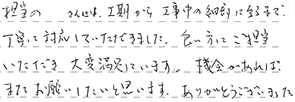 担当の　　さんには、工期から工事中の細部に至るまで、
丁寧に対応していただきました。良い方にご担当
いただき大変満足しています。機会があれば、
またお願いしたいと思います。ありがとうございました